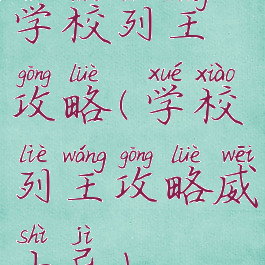 学校列王
gōng lüè xué xiào
攻略(学校
liè wáng gōng lüè wēi
列王攻略威
shì jì